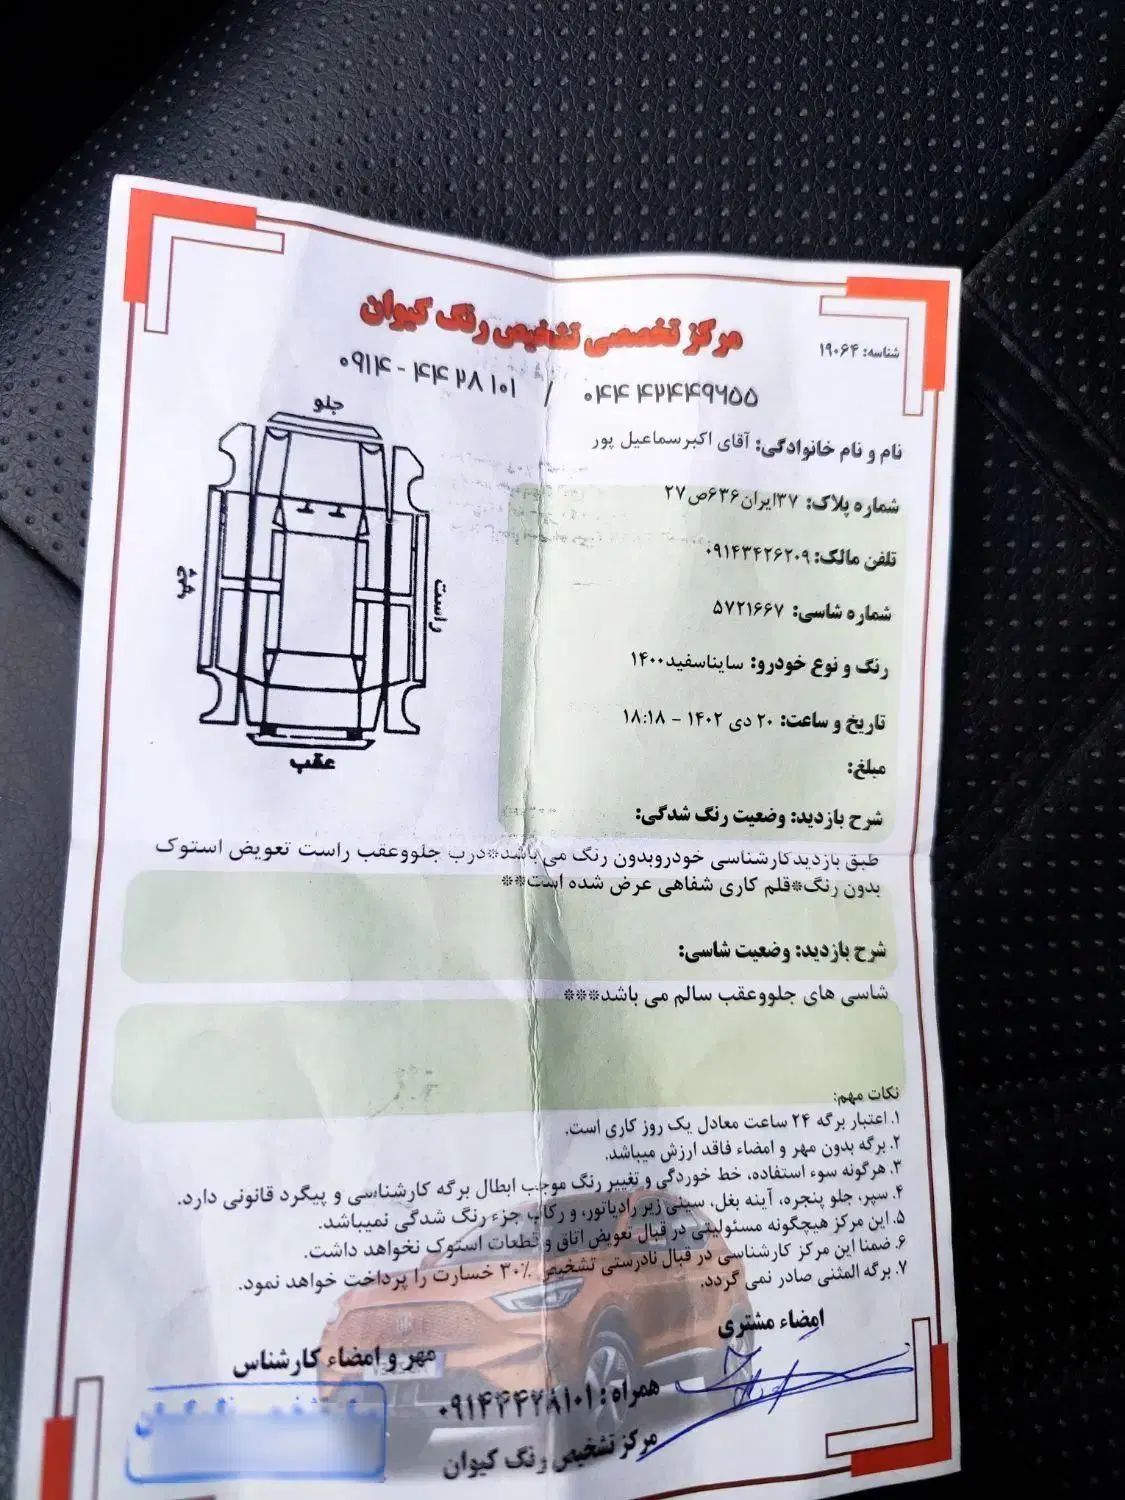 مرکز تخصصی تشخیص رنگ کیوان
شناسه: ۱۹۰۶۴
۰۴۴ ۴۲۴۴۹۶۵۵ / ۰۹۱۴ - ۴۴ ۲۸ ۱۰۱
نام و نام خانوادگی: آقای اکبرسماعیل پور
شماره پلاک: ۳۷ایران۶۳۶ص۲۷
تلفن مالک: ۰۹۱۴۳۴۲۶۲۰۹
شماره شاسی: ۵۷۲۱۶۶۷
رنگ و نوع خودرو: سایناسفید۱۴۰۰
تاریخ و ساعت: ۲۰ دی ۱۴۰۲ - ۱۸:۱۸
مبلغ:
جلو
راست
چپ
عقب
شرح بازدید: وضعیت رنگ شدگی:
طبق بازدیدکارشناسی خودروبدون رنگ می باشد*درب جلووعقب راست تعویض استوک
بدون رنگ*قلم کاری شفاهی عرض شده است**
شرح بازدید: وضعیت شاسی:
شاسی های جلووعقب سالم می باشد***
نکات مهم:
۱. اعتبار برگه ۲۴ ساعت معادل یک روز کاری است.
۲. برگه بدون مهر و امضاء فاقد ارزش میباشد.
۳. هرگونه سوء استفاده، خط خوردگی و تغییر رنگ موجب ابطال برگه کارشناسی و پیگرد قانونی دارد.
۴. سپر، جلو پنجره، آینه بغل، سینی زیر رادیاتور، و رکاب جزء رنگ شدگی نمیباشد.
۵. این مرکز هیچگونه مسئولیتی در قبال تعویض اتاق و قطعات استوک نخواهد داشت.
۶. ضمنا این مرکز کارشناسی در قبال نادرستی تشخیص ۳۰٪ خسارت را پرداخت خواهد نمود.
۷. برگه المثنی صادر نمی گردد.
امضاء مشتری
مهر و امضاء کارشناس
همراه : ۰۹۱۴۴۴۲۸۱۰۱
مرکز تشخیص رنگ کیوان